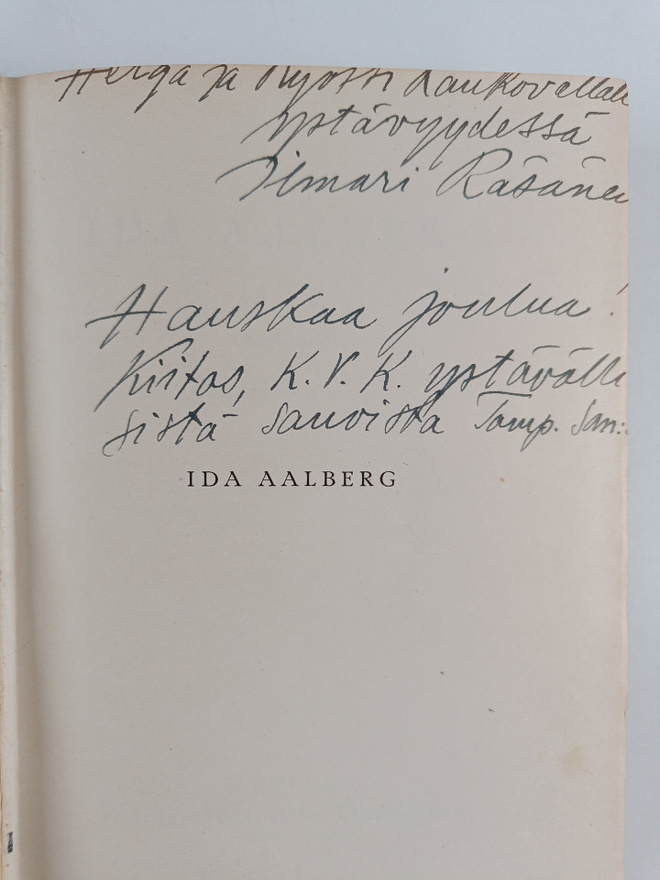 Helga ja Kyösti Kaukovallalle
ystävyydessä
Ilmari Räsänen
Hauskaa joulua!
Kiitos, K. V. K. ystävälli
sistä sanoista Tamp. San:
IDA AALBERG